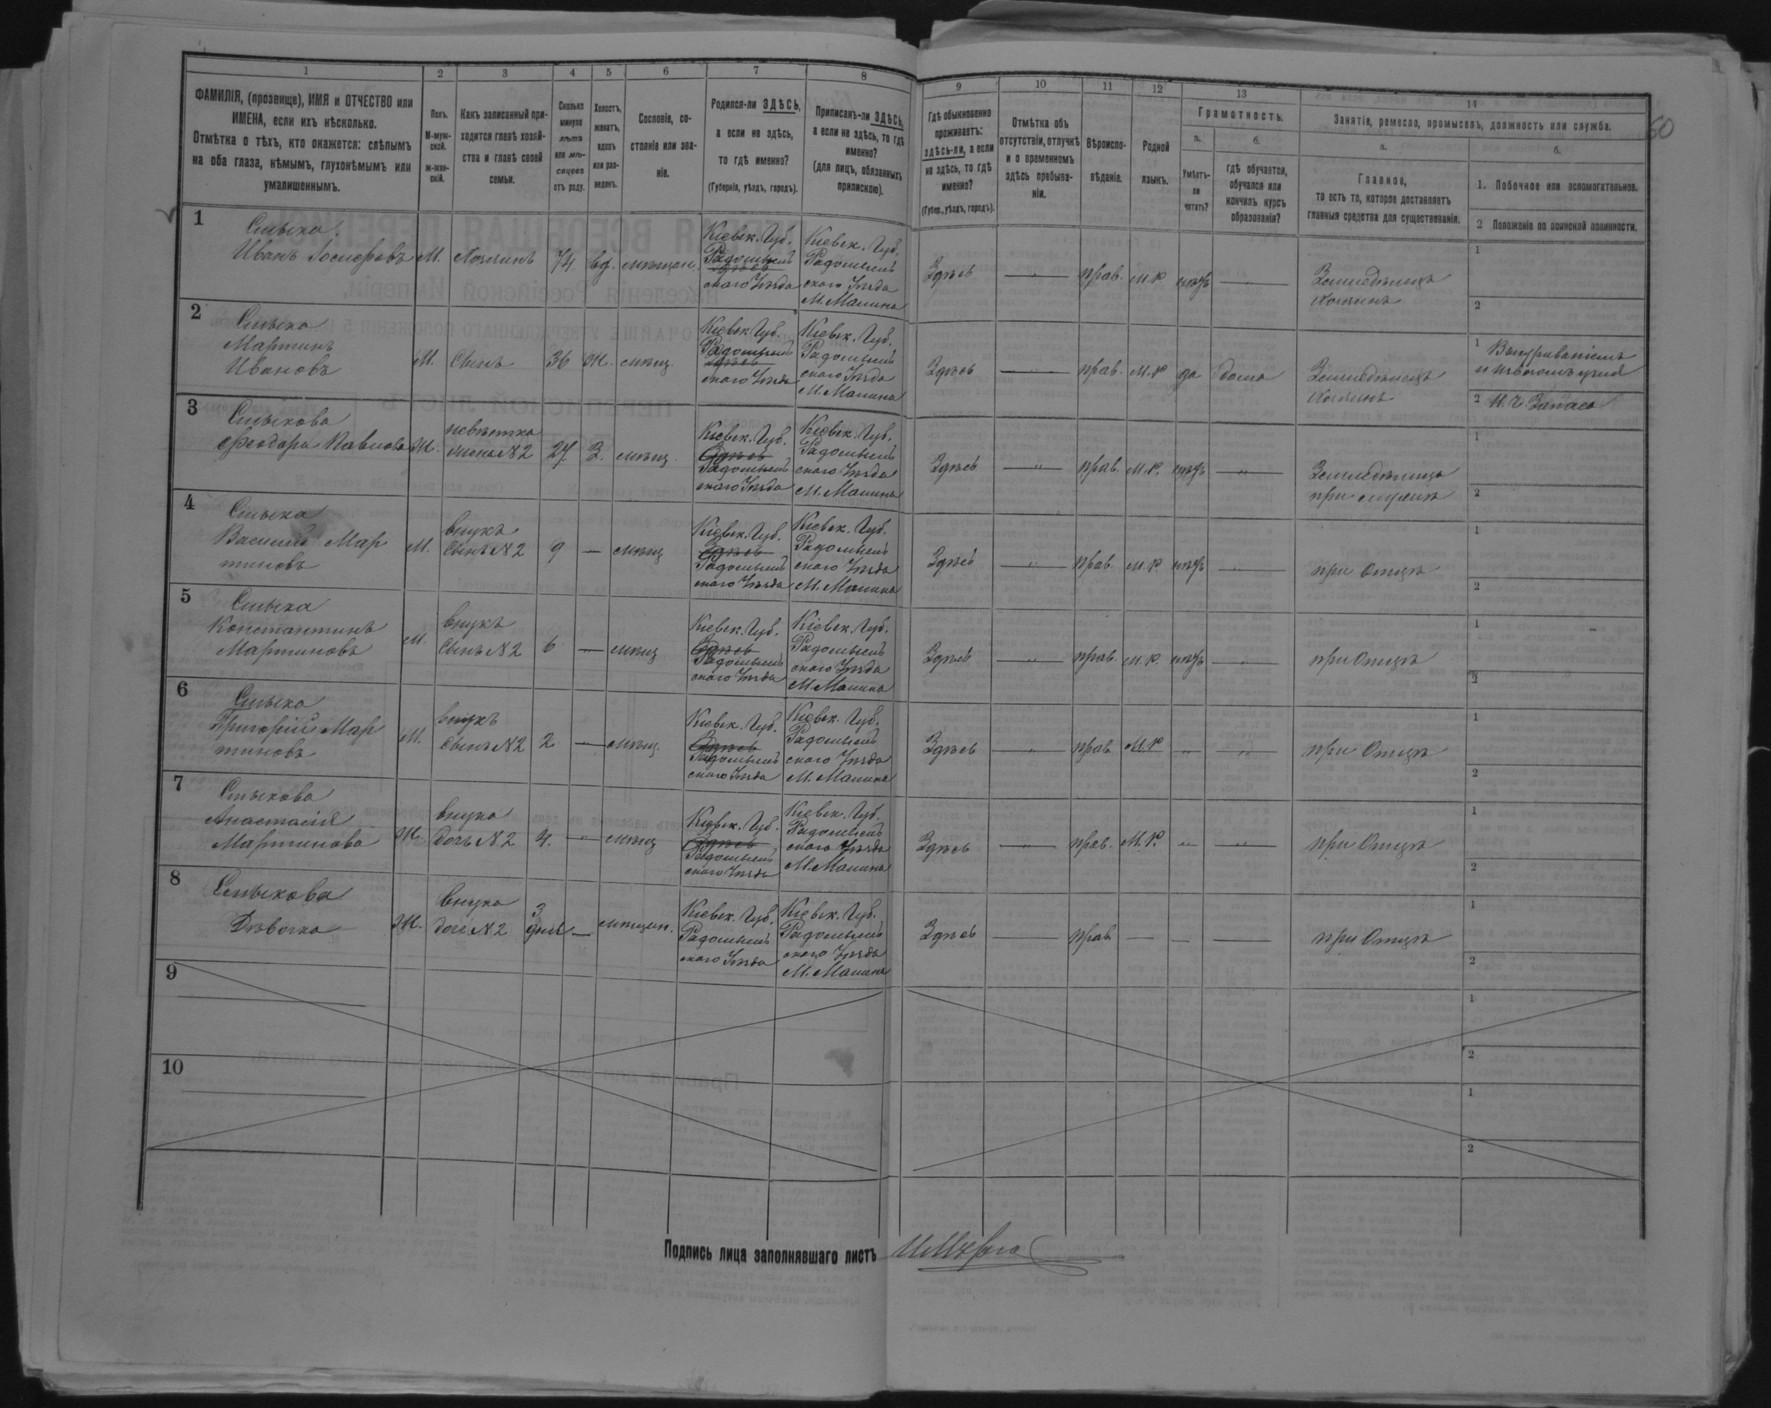 1 2 3 4 5 6 7 8 9 10 11 12 13 14
60
ФАМИЛІЯ, (прозвище), ИМЯ и ОТЧЕСТВО или
ИМЕНА, если ихъ нѣсколько.
Отмѣтка о тѣхъ, кто окажется: слѣпымъ
на оба глаза, нѣмымъ, глухонѣмымъ или
умалишеннымъ.
Полъ.
М-муж-
ской.
ж-жен-
скій.
Какъ записанный при-
ходится главѣ хозяй-
ства и главѣ своей
семьи.
Сколько
минуло
лѣтъ
или мѣ-
сяцевъ
отъ роду.
Холостъ,
женатъ,
вдовъ
или раз-
веденъ.
Сословіе, со-
стояніе или зва-
ніе.
Родился-ли ЗДѢСЬ,
а если не здѣсь,
то гдѣ именно?
(Губернія, уѣздъ, городъ).
Приписанъ-ли ЗДѢСЬ,
а если не здѣсь, то гдѣ
именно?
(для лицъ, обязанныхъ
припискою).
Гдѣ обыкновенно
проживаетъ:
здѣсь-ли, а если
не здѣсь, то гдѣ
именно?
(Губер., уѣздъ, городъ).
Отмѣтка объ
отсутствіи, отлучкѣ
и о временномъ
здѣсь пребыва-
ніи.
Вѣроиспо-
вѣданіе.
Родной
языкъ.
Грамотность.
а.
Умѣетъ-
ли
читать?
б.
гдѣ обучается,
обучался или
кончилъ курсъ
образованія?
Занятія, ремесло, промыселъ, должность или служба.
а.
Главное,
то есть то, которое доставляетъ
главныя средства для существованія.
б.
1. Побочное или вспомогательное.
2 Положеніе по воинской повинности.
1
Иванъ
М. Хозяинъ 74 вд. мѣщан.
Кіевск. Губ.
Радомысль
скаго Уѣзда
Кіевск. Губ.
Радомысль
скаго Уѣзда
М. Малина
Здѣсь прав. м.р нѣтъ
Земледѣлецъ
Хозяинъ
1
2
2
Мартинъ
Ивановъ
М. Сынъ 36 Ж. мѣщ.
Кіевск. Губ.
Радомысль
скаго Уѣзда
Кіевск. Губ.
Радомысль
скаго Уѣзда
М. Малина
Здѣсь прав. м.р да дома
Земледѣлецъ
Хозяинъ
1
2
3
Феодора Павлова
Ж.
невѣстка
жена N 2
27 З. мѣщ.
Кіевск. Губ.
Здѣсь
Радомысль
скаго Уѣзда
Кіевск. Губ.
Радомысль
скаго Уѣзда
М. Малина
Здѣсь " прав м.р. нѣтъ "
Земледѣлица
при
1
2
4
Василий Мар
тиновъ
М.
внукъ
сынъ N 2
9 — мѣщ
Кіевск. Губ.
Здѣсь
Радомысль
скаго Уѣзда
Кіевск. Губ.
Радомысль
скаго Уѣзда
М. Малина
Здѣсь " прав. м.р. нѣтъ
при Отцѣ
1
2
5
Константинъ
Мартиновъ
М.
внукъ
Сынъ N 2
6 — мѣщ
Кіевск. Губ.
Здѣсь
Радомысль
скаго Уѣзда
Кіевск. Губ.
Радомысль
скаго Уѣзда
М. Малина
Здѣсь " прав. м.р. нѣтъ "
при Отцѣ
1
2
6
Григорій Мар
тиновъ
М.
внукъ
Сынъ N 2
2 — мѣщ.
Кіевск. Губ.
Здѣсь
Радомысль
скаго Уѣзда
Кіевск. Губ.
Радомысль
скаго Уѣзда
М. Малина
Здѣсь " прав. М.р " "
при Отцѣ
1
2
7
Анастасія
Мартинова
Ж.
внука
дочь N 2
4. — мѣщ
Кіевск. Губ.
Здѣсь
Радомысль
скаго Уѣзда
Кіевск. Губ.
Радомысль
скаго Уѣзда
М. Малина
Здѣсь " прав. М.р. " "
при Отцѣ
1
2
8
Дѣвочка
Ж.
внука
дочь N 2
3
дня — мѣщан.
Кіевск. Губ.
Радомысль
скаго Уѣзда
Кіевск. Губ.
Радомысль
скаго Уѣзда
М. Малина
Здѣсь — прав — — —
при Отцѣ
1
2
9
1
2
10
1
2
Подпись лица заполнявшаго листъ